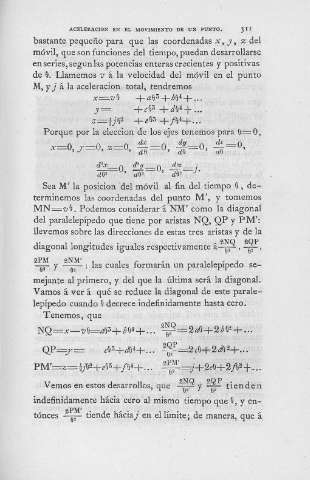 ACELERACION EN EL MOVIMIENTO DE UN PUNTO. 311
bastante pequeño para que las coordenadas x, y, z del
móvil, que son funciones del tiempo, puedan desarrollarse
en series, segun las potencias enteras crecientes y positivas
de θ. Llamemos v á la velocidad del móvil en el punto
M, y j á la aceleracion total, tendremos
x=vθ +aθ³+bθ⁴+...
y= +cθ³ +dθ⁴+...
z=½jθ² +eθ³ +fθ⁴+...
Porque por la eleccion de los ejes tenemos para θ=0,
x=0, y=0, z=0, dx/dθ=0, dy/dθ=0, dz/dθ=0,
d²x/dθ²=0, d²y/dθ²=0, d²z/dθ²=j.
Sea M' la posicion del móvil al fin del tiempo θ, de-
terminemos las coordenadas del punto M', y tomemos
MN=vθ. Podemos considerar á NM' como la diagonal
del paralelepípedo que tiene por aristas NQ, QP y PM':
llevemos sobre las direcciones de estas tres aristas y de la
diagonal longitudes iguales respectivamente á 2NQ/θ², 2QP/θ²,
2PM'/θ² y 2NM'/θ²: las cuales formarán un paralelepípedo se-
mejante al primero, y del que la última será la diagonal.
Vamos á ver á qué se reduce la diagonal de este parale-
lepípedo cuando θ decrece indefinidamente hasta cero.
Tenemos, que
NQ=x—vθ=aθ³+bθ⁴+... 2NQ/θ²=2aθ+2bθ²+...
QP=y= cθ³+dθ⁴+... 2QP/θ²=2cθ+2dθ²+...
PM'=z=½jθ²+eθ³+fθ⁴+... 2PM'/θ²=j+2eθ+2fθ²+...
Vemos en estos desarrollos, que 2NQ/θ² y 2QP/θ² tienden
indefinidamente hácia cero al mismo tiempo que θ, y en-
tónces 2PM'/θ² tiende hácia j en el límite; de manera, que á